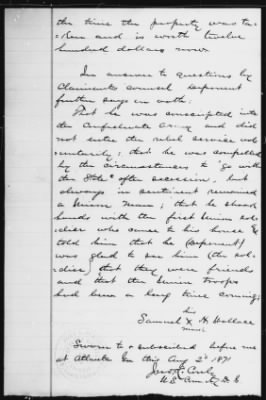 the time the property was ta-
-ken and is worth twelve
hundred dollars now.
In answer to questions by
Claimants counsel deponent
further says on oath:
That he was conscripted into
the Confederate Army and did
not enter the rebel service vol-
untarily; that he was compelled
by the circumstances to "go with
the State" after secession, but
always in sentiment remained
a Union Man; that he shook
hands with the first Union sol-
dier who came to his house &
told him that he (deponent)
was glad to see him (the sol-
dier) that they were friends
and that the Union troops
had been a long time coming;
his
Samuel X H Wallace
mark
Sworn to & subscribed before me
at Atlanta Ga this Aug 2d 1871